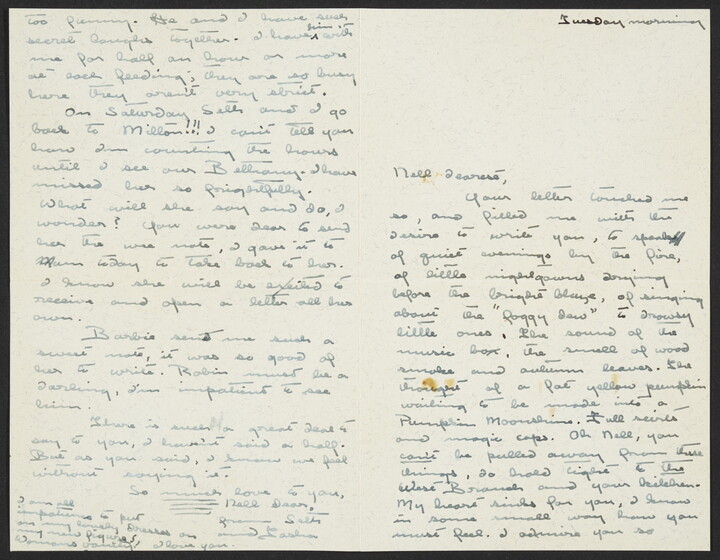 Tuesday morning
Nell dearest,
Your letter touched me
so, and filled me with the
desire to write you, to speak
of quiet evenings by the fire,
of little nightgowns drying
before the bright blaze, of singing
about the "foggy dew" to drowsy
little ones, the sound of the
music box, the smell of wood
smoke and autumn leaves. The
thought of a fat yellow pumpkin
waiting to be made into a
Pumpkin Moonshine. Full skirts
and magic caps. Oh Nell, you
can't be pulled away from these
things, do hold tight to the
West Branch and your kitchen.
My heart sinks for you, I know
in some small way how you
must feel. I admire you so
too funny. He and I have such
secret laughs together. I have him with
me for half an hour or more
at each feeding; they are so busy
here they aren't very strict.
On Saturday Seth and I go
back to Milton!!! I can't tell you
how I'm counting the hours
until I see our Bethany. I have
missed her so frightfully.
What will she say and do, I
wonder? You were dear to send
her the wee note, I gave it to
Mam today to take back to her.
I know she will be excited to
receive and open a letter all her
own.
Barbie sent me such a
sweet note, it was so good of
her to write. Robin must be a
darling, I'm impatient to see
him.
There is such a great deal to
say to you, I haven't said a half.
But as you said, I know we feel
without saying it.
So much love to you,
Nell Dear,
from Seth
and Tasha
I am all
impatient to put
on my lovely dresses on
my new figure,
Womans vanity! I love you.